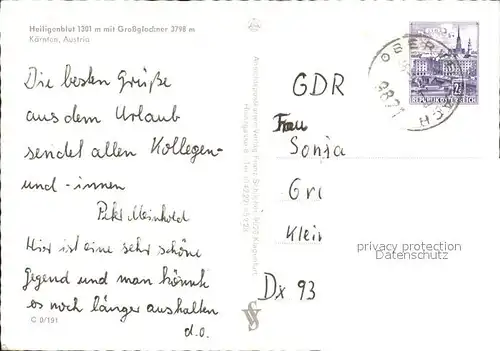 Heiligenblut 1301 m mit Großglockner 3798 m
Kärnten, Austria
Die besten Grüße
aus dem Urlaub
sendet allen Kollegen-
und -innen
Meinhold
Hier ist eine sehr schöne
Gegend und man könnte
es noch länger aushalten
d.o.
C 0/191
GDR
Frau
Sonja
Gr
Klein
Dx 93
privacy protection
Datenschutz
9821
REPUBLIK ÖSTERREICH